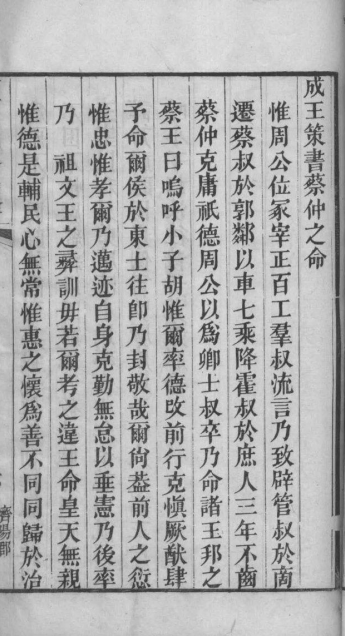 成王策書蔡仲之命
惟周公位冢宰正百工羣叔流言乃致辟管叔於商
遷蔡叔於郭鄰以車七乘降霍叔於庶人三年不齒
蔡仲克庸祇德周公以為卿士叔卒乃命諸王邦之
蔡王曰嗚呼小子胡惟爾率德改前行克愼厥猷肆
予命爾侯於東土往卽乃封敬哉爾尙葢前人之愆
惟忠惟孝爾乃邁迹自身克勤無怠以垂憲乃後率
乃 祖文王之彛訓毋若爾考之違王命皇天無親
惟德是輔民心無常惟惠之懷為善不同同歸於治
濟陽郡